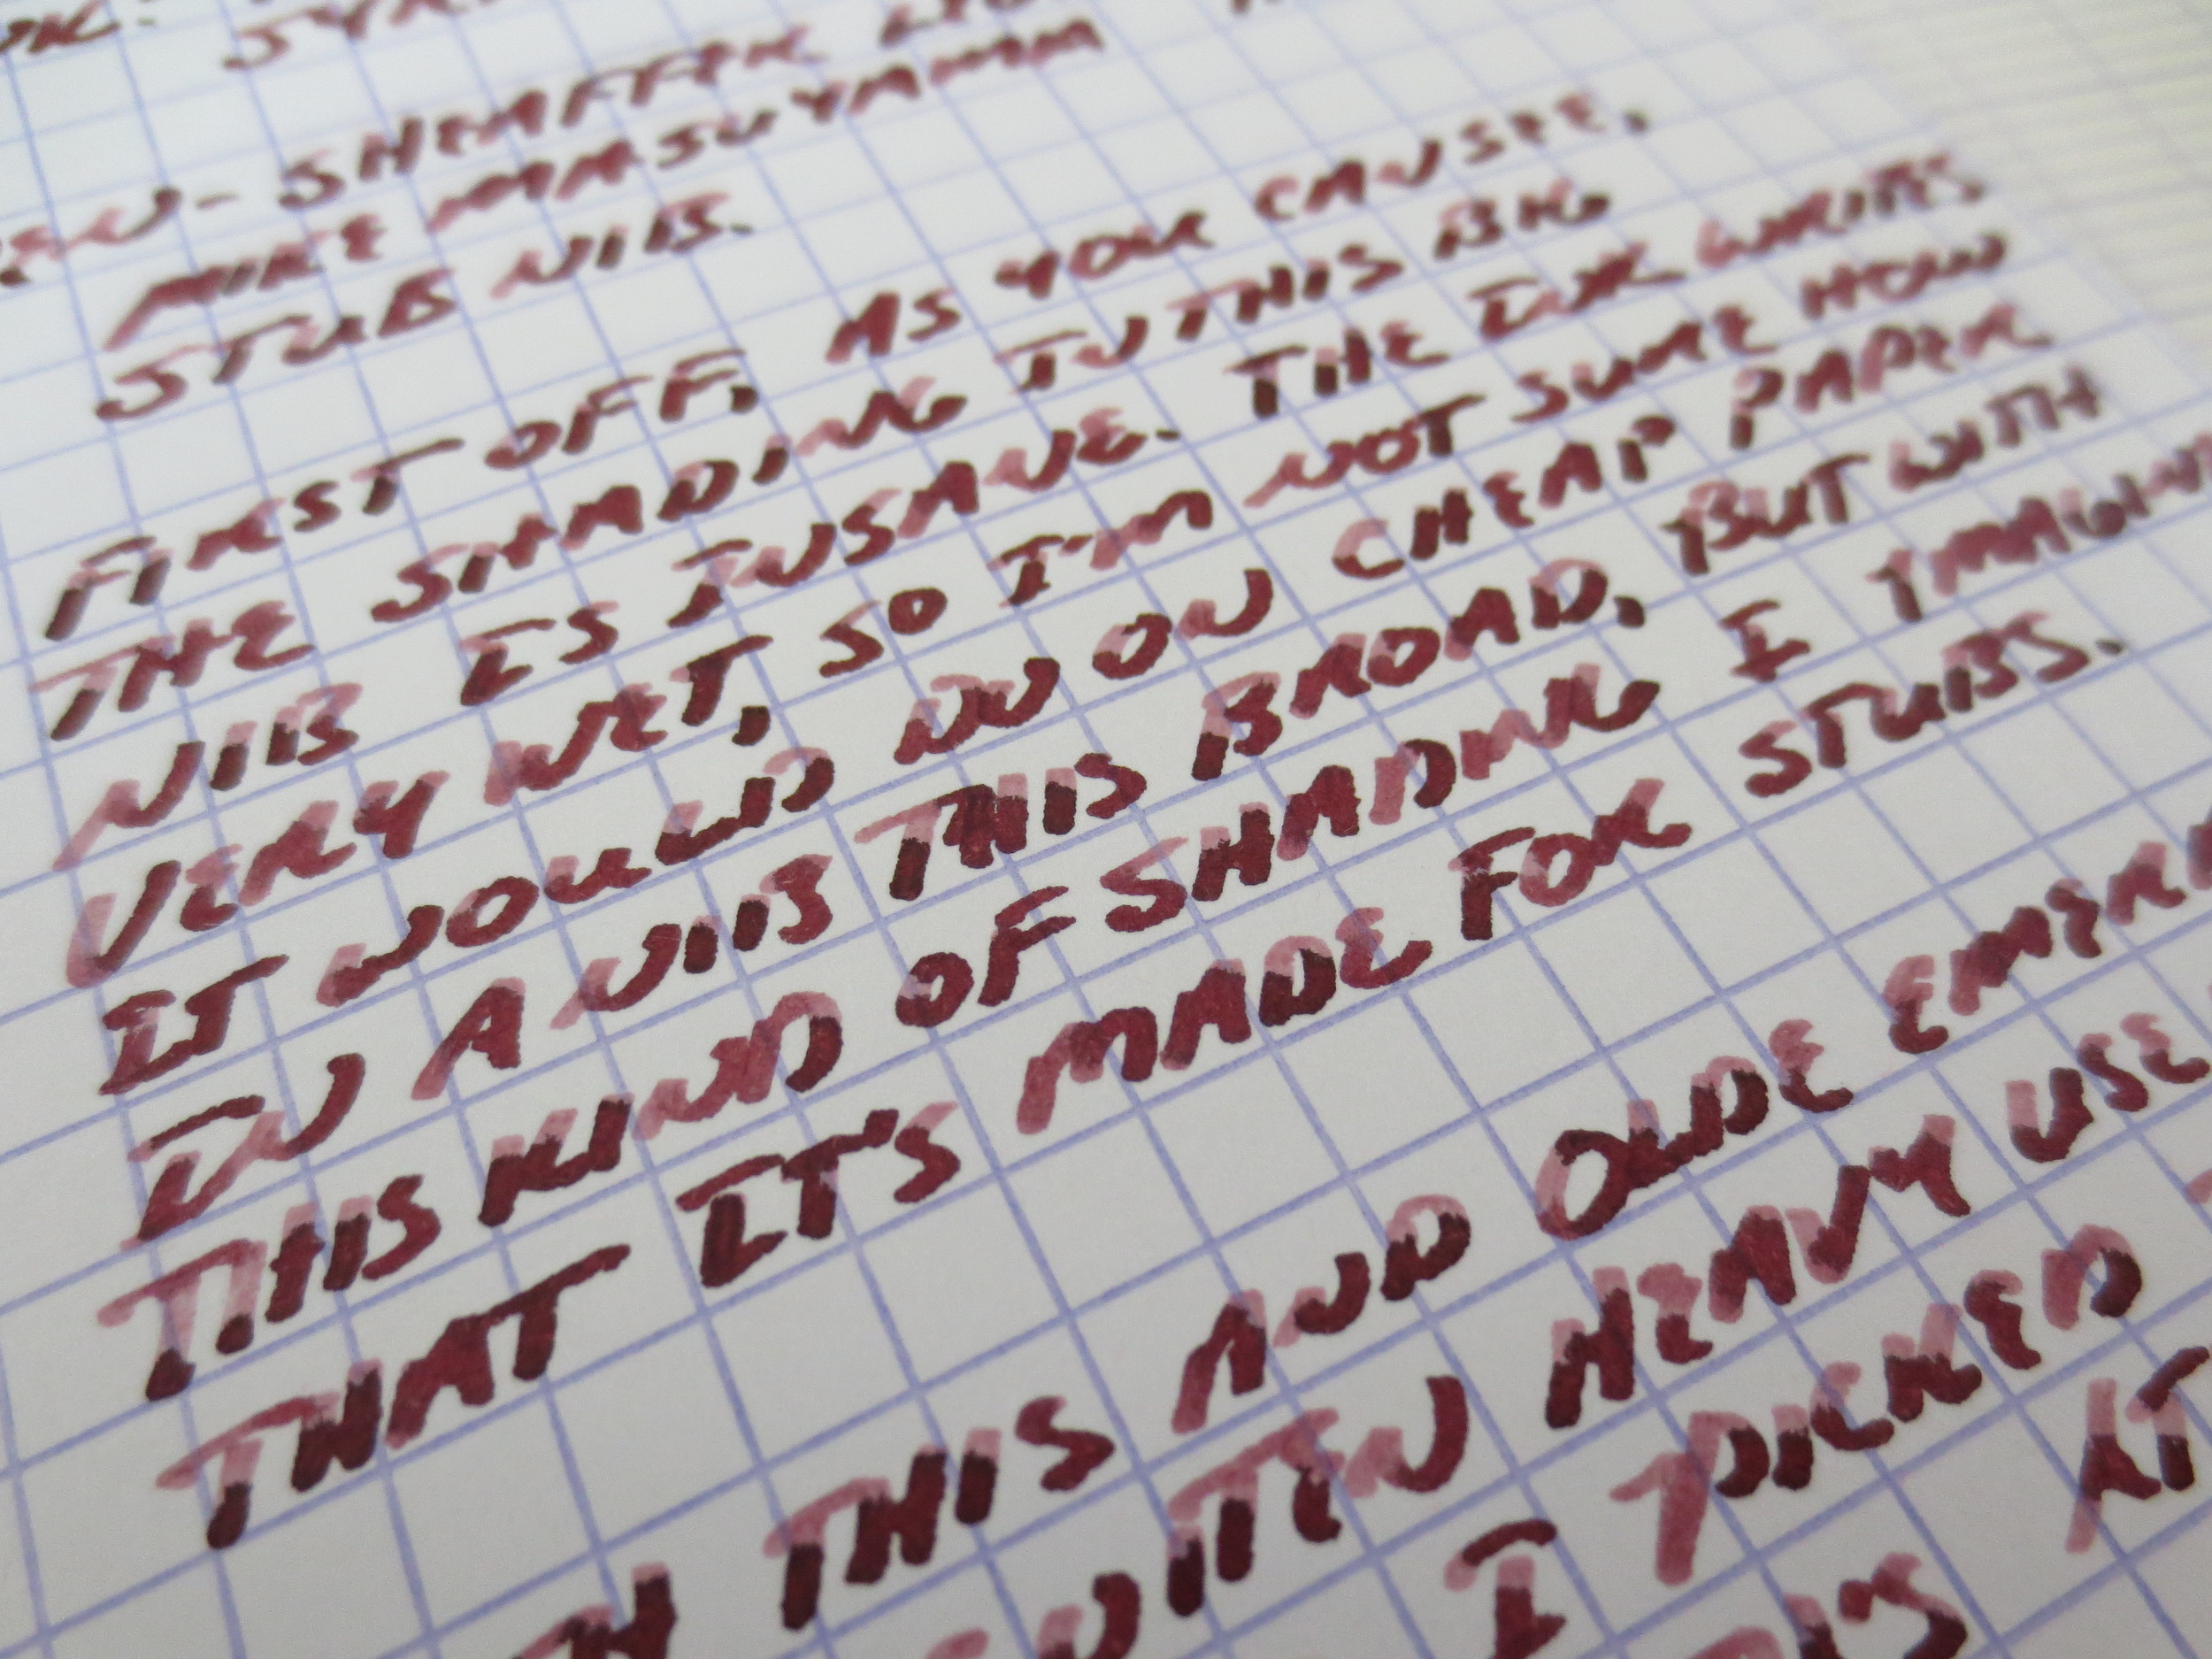 SHEAFFER
MIKE MASUYAMA
STUB NIB.
FIRST OFF, AS YOU CAN SEE,
THE SHADING IN THIS BIG
NIB IS INSANE. THE INK WRITES
VERY WET, SO I'M NOT SURE HOW
IT WOULD DO ON CHEAP PAPER
IN A NIB THIS BROAD, BUT WITH
THIS KIND OF SHADING I
THAT IT'S MADE FOR STUBS.
THIS AND OLDE
HEAVY USE
I PICKED
AT